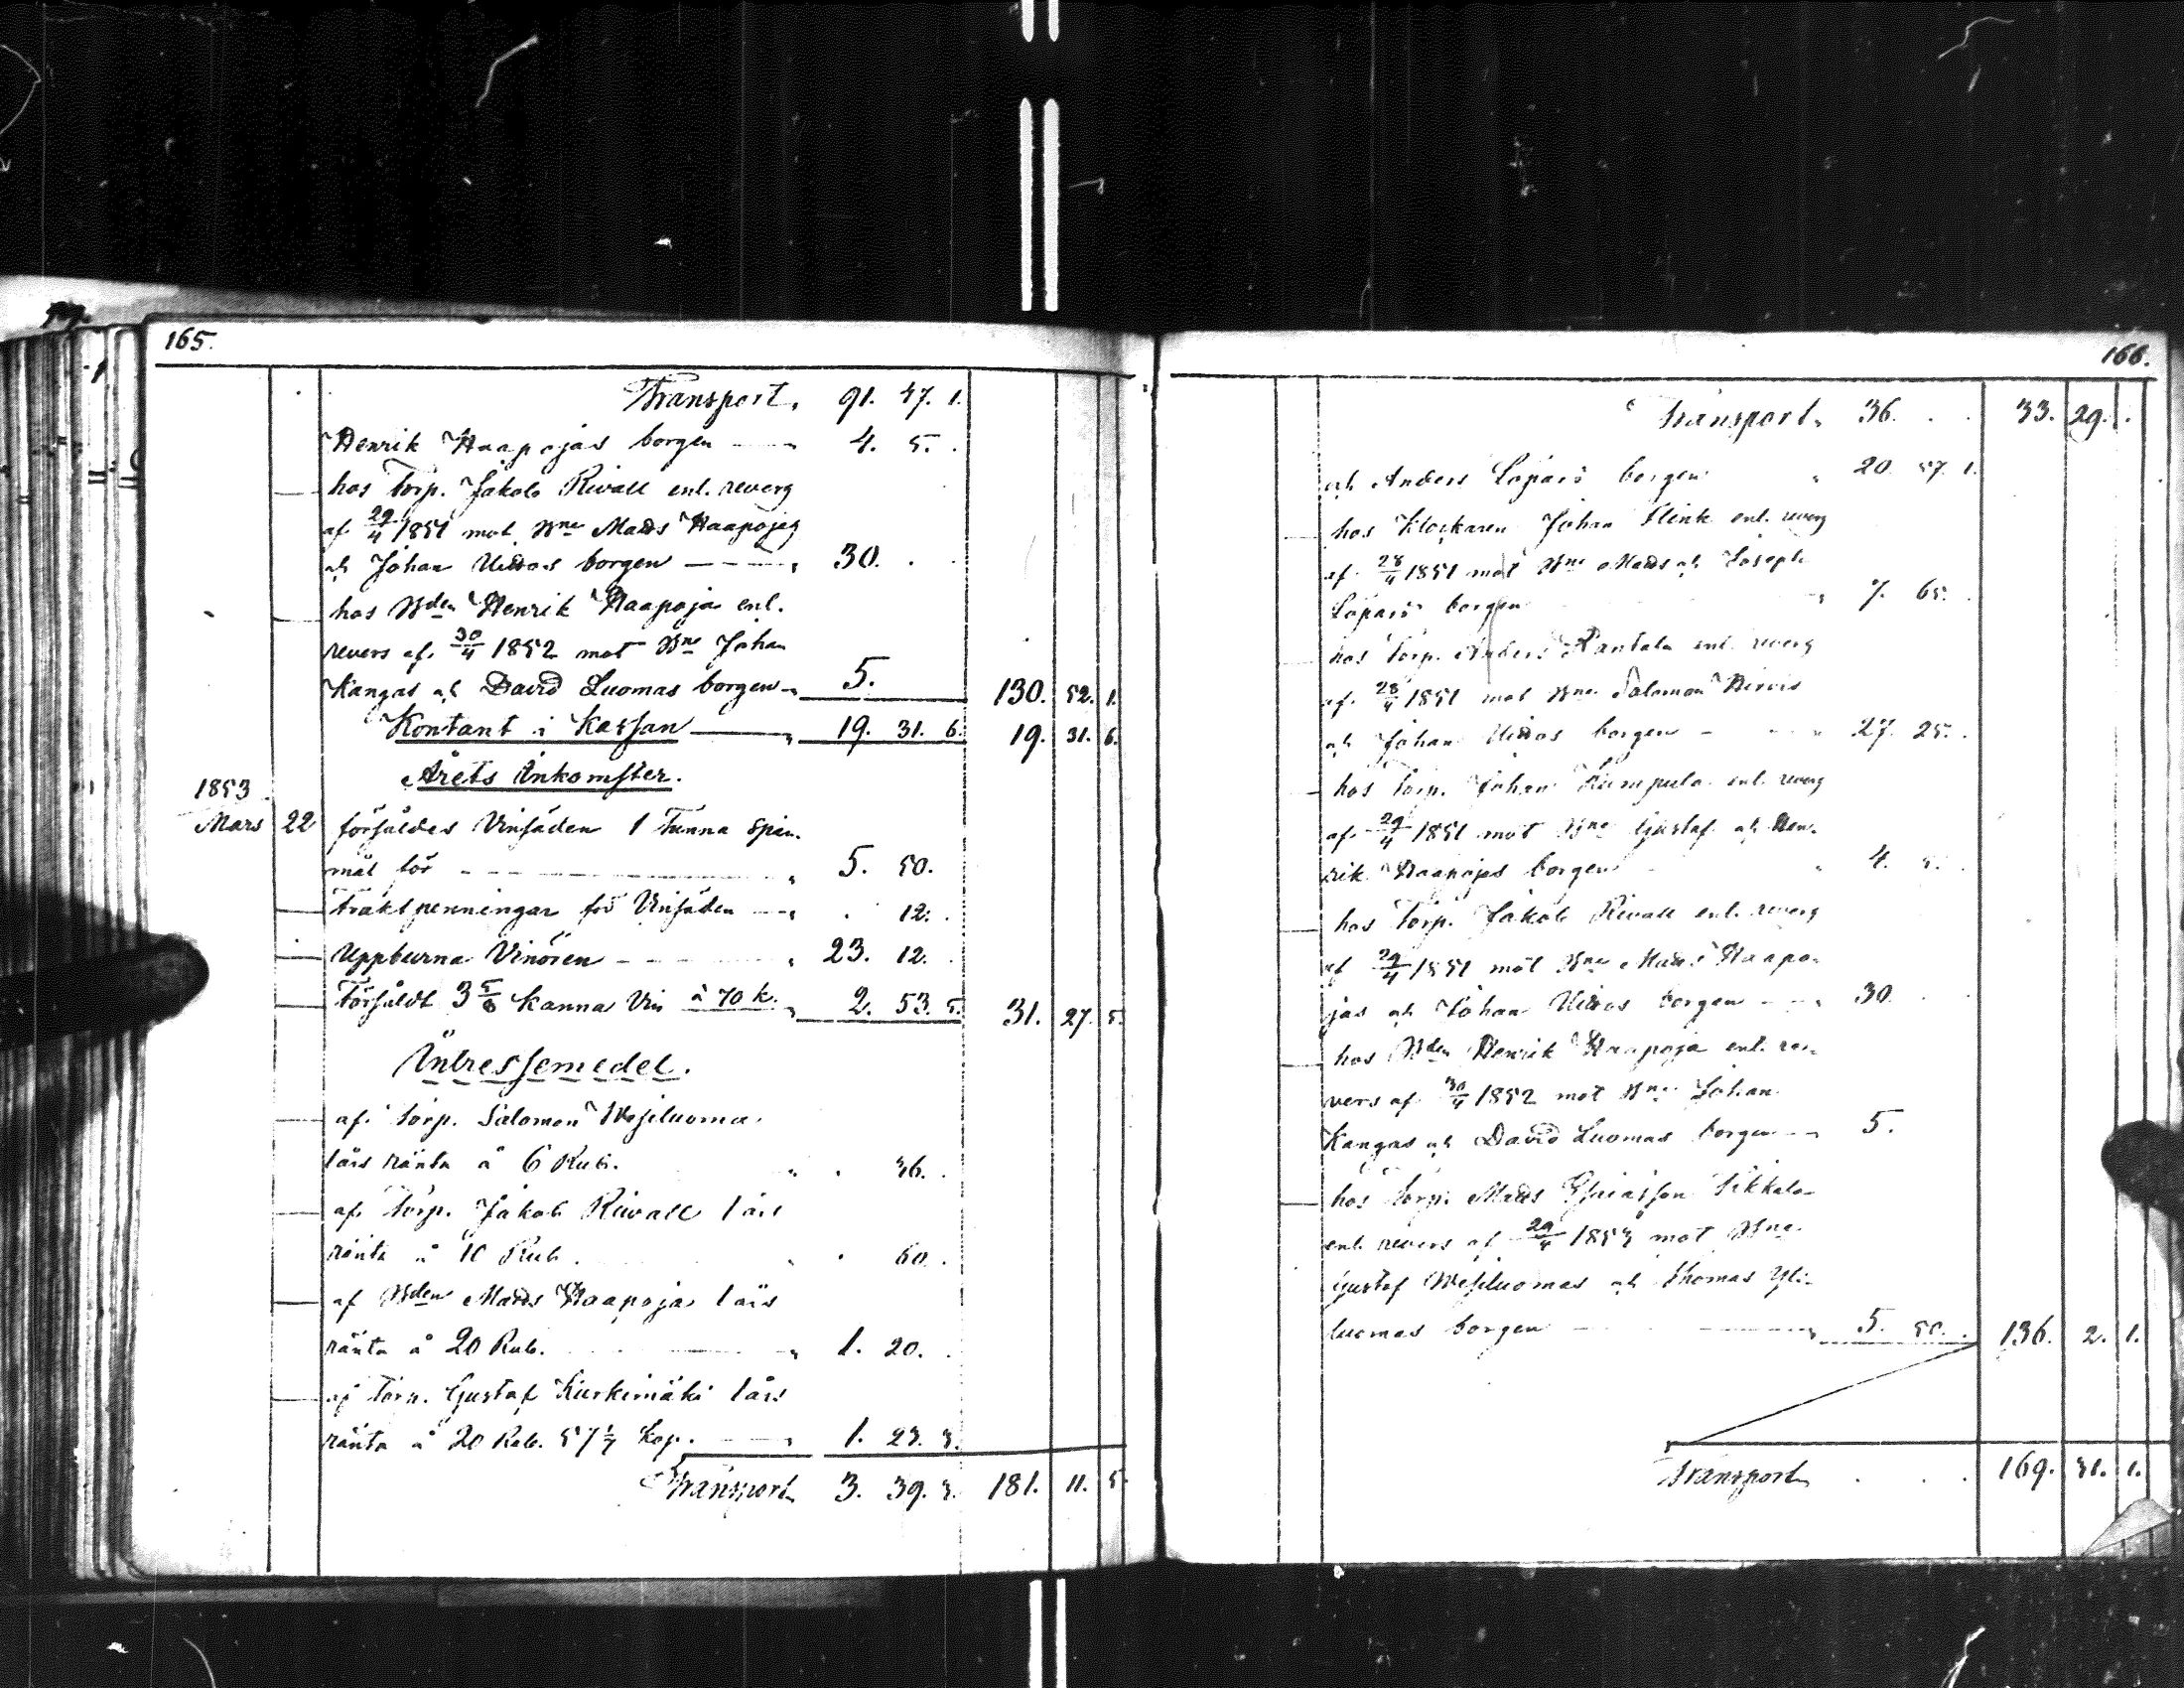 165.
Transport, 91. 47. 1.
Henrik Haapojas borgen 4. 5.
hos Torp. Jakob Rivall enl. revers
af 29/4 1851 mot Bne Matts Haapojas
och Johan Uitos borgen 30.
hos Bden Henrik Haapoja enl.
revers af 30/4 1852 mot Bne Johan
Kangas och David Luomas borgen 5. 130. 52. 1.
Kontant i Kassan 19. 31. 6. 19. 31. 6.
Årets Inkomster.
1853
Mars 22 försåldes Vinsäden 1 Tunna span-
mål för 5. 50.
Fraktpenningar för Vinsäden 12.
Uppburna Vinören 23. 12.
Försåldt 3 5/8 Kanna Vin à 70 k. 2. 53. 5. 31. 27. 5.
Intressemedel.
af Torp. Salomon Wesiluoma
1 års ränta å 6 Rub. 36.
af Torp. Jakob Rivall 1 års
ränta å 10 Rub. 60.
af Bden Matts Haapoja 1 års
ränta å 20 Rub. 1. 20.
af Torp. Gustaf Kurkimäki 1 års
ränta å 20 Rub. 57 1/7 Kop. 1. 23. 3.
Transport 3. 39. 3. 181. 11. 5.
166.
Transport, 36. 33. 29.
och Anders Löpars borgen 20. 57. 1.
hos Klockaren Johan Flink enl. revers
af 28/4 1851 mot Bne Matts och Joseph
Löpars borgen 7. 65.
hos Torp. Anders Rantala enl. revers
af 28/4 1851 mot Bne Salomon Hirvis
och Johan Uitos borgen 27. 25.
hos Torp. Johan Kumpula enl. revers
af 29/4 1851 mot Bne Gustaf och Hen-
rik Haapojas borgen 4. 5.
hos Torp. Jakob Rivall enl. revers
af 29/4 1851 mot Bne Matts Haapo-
jas och Johan Uitos borgen 30.
hos Bden Henrik Haapoja enl. re-
vers af 30/4 1852 mot Bne Johan
Kangas och David Luomas borgen 5.
hos Torp. Matts Esaiasson Sikkala
enl. revers af 29/4 1853 mot Bne
Gustaf Wesiluomas och Thomas Yli-
luomas borgen 5. 50. 136. 2. 1.
Transport 169. 31. 1.